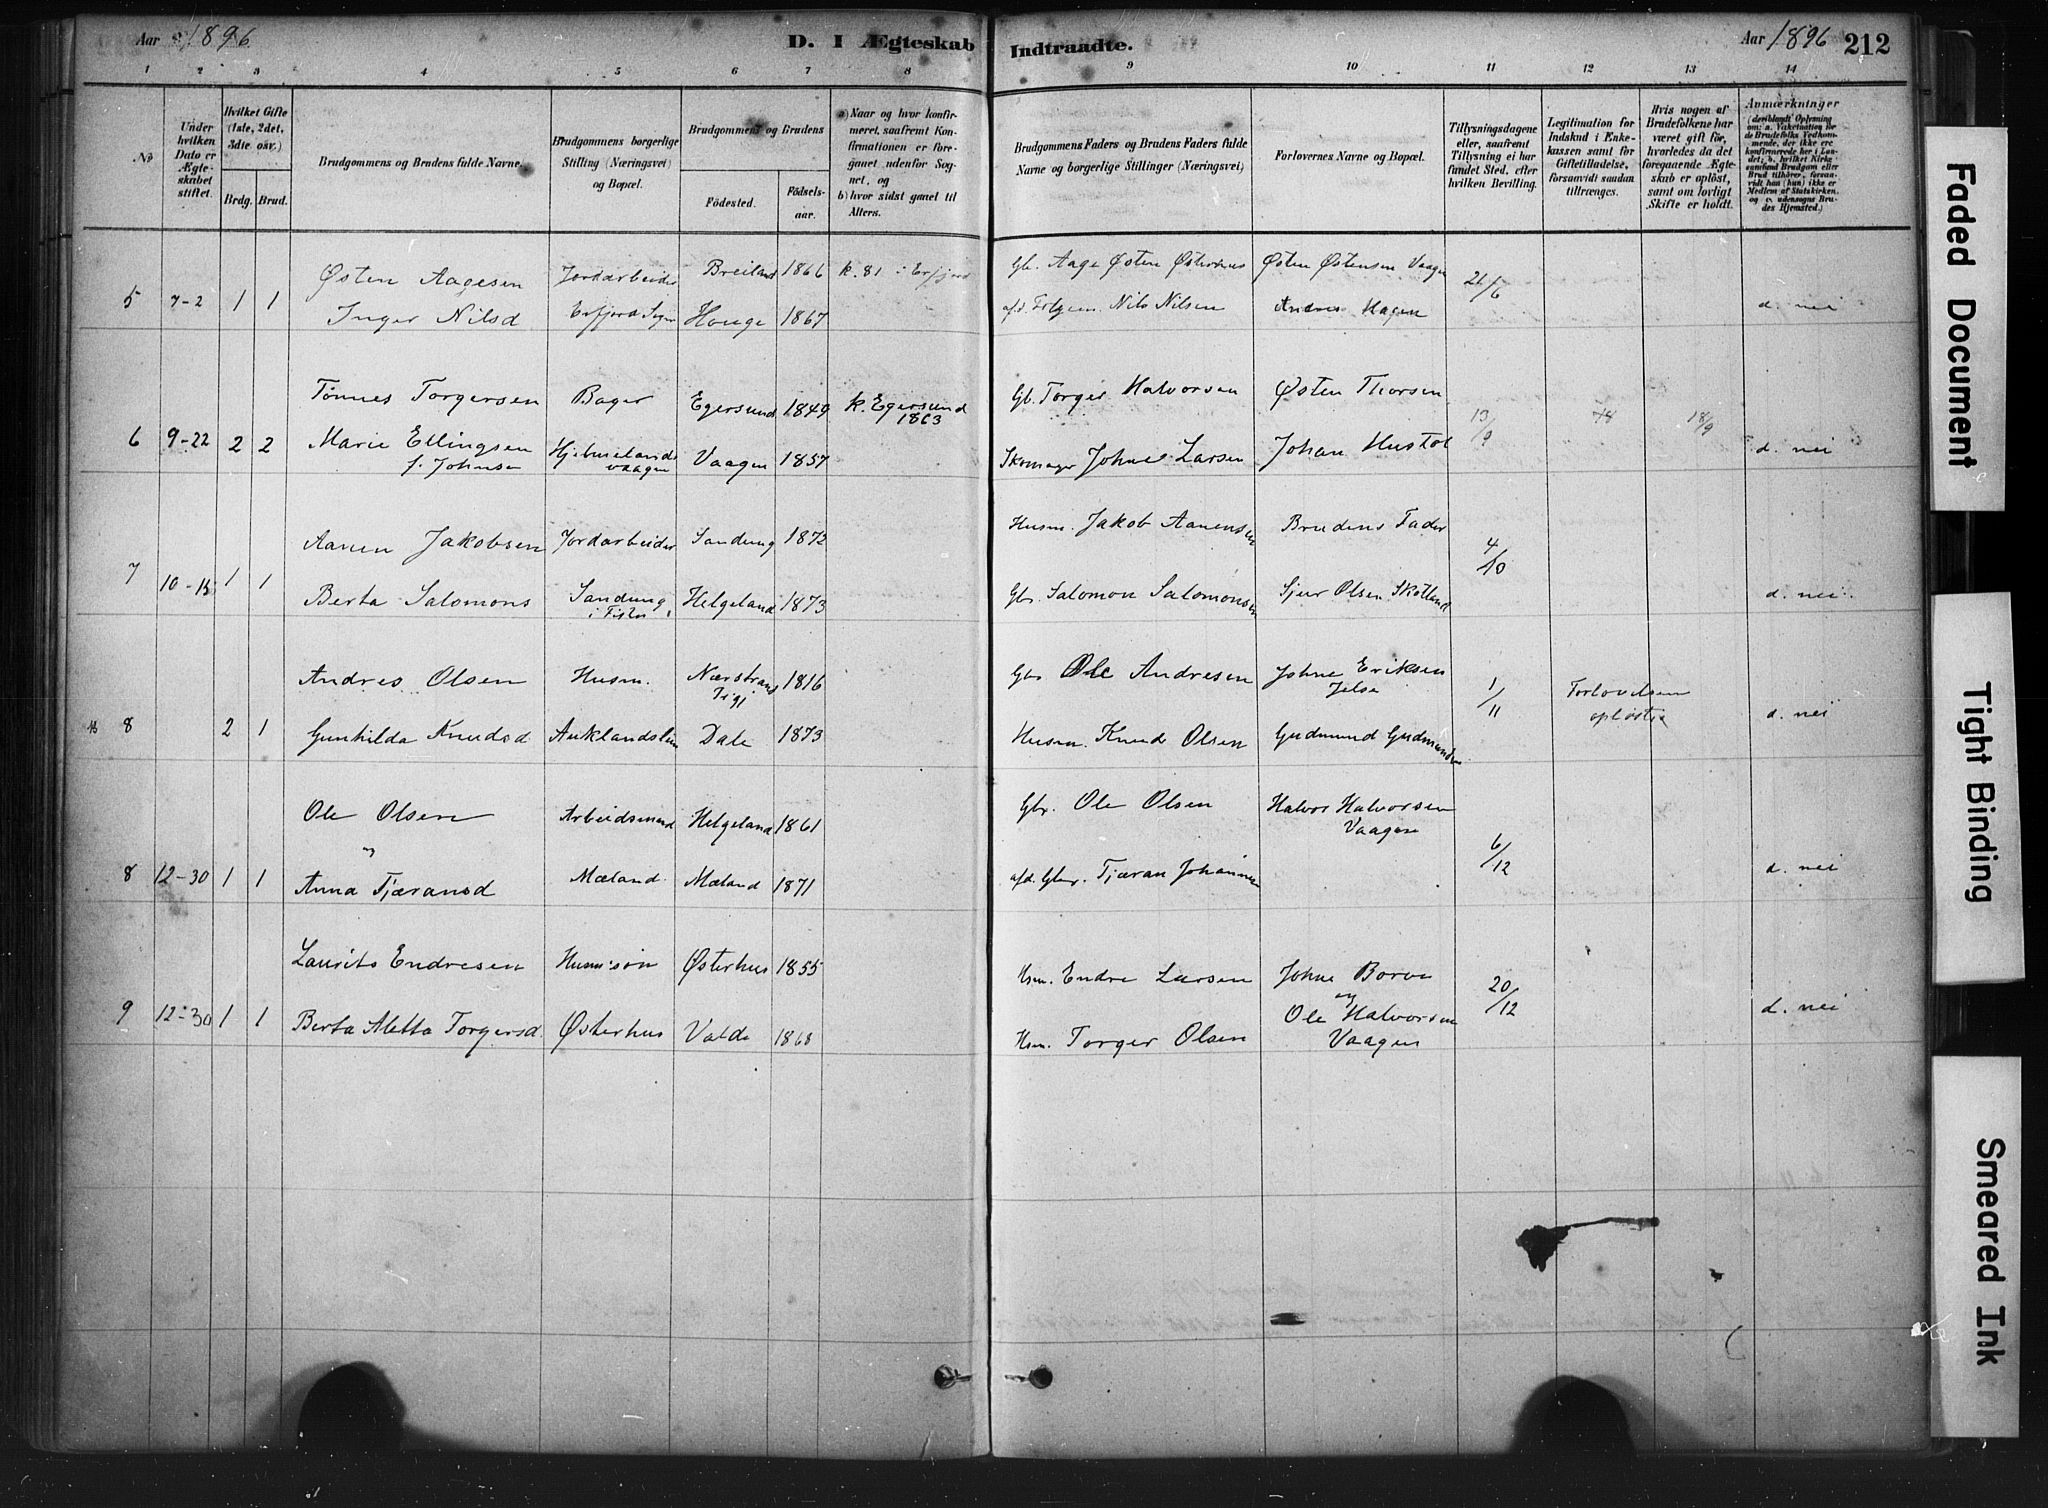 Aar 1896
D. I Ægteskab Indtraadte.
Aar 1896
212
1 2 3 4 5 6 7 8 9 10 11 12 13 14
No
Under hvilken Dato er Ægteskabet stiftet.
Hvilket Gifte (1ste, 2det, 3die osv.)
Brdg. Brud.
Brudgommens og Brudens fulde Navne.
Brudgommens borgerlige Stilling (Næringsvei) og Bopæl.
Brudgommens og Brudens
Födested.
Födselsaar.
a) Naar og hvor konfirmeret, saafremt Konfirmationen er foregaaet udenfor Sognet, og
b) hvor sidst gaaet til Alters.
Brudgommens Faders og Brudens Faders fulde Navne og borgerlige Stillinger (Næringsvei)
Forlovernes Navne og Bopæl.
Tillysningsdagene eller, saafremt Tillysning ei har fundet Sted, efter hvilken Bevilling.
Legitimation for Indskud i Enkekassen samt for Giftetilladelse, forsaavidt saadan tiltrænges.
Hvis nogen af Brudefolkene har været gift för, hvorledes da det foregaaende Ægteskab er oplöst, samt om lovligt Skifte er holdt.
Anmærkninger
(deriblandt Oplysning om: a. Vakcination for de Brudefolks Vedkommende, der ikke ere konfirmerede her i Landet; b. hvilket Kirkesamfund Brudgom eller Brud tilhører, forsaavidt han (hun) ikke er Medlem af Statskirken, og c. udensogns Brudes Hjemsted.)
Østen Aagesen Jordarbeider Breiland 1866 k. 81 i Erfjord Gb. Aage Østen Østerhus Østen Østensen Vaagen
5 7-2 1 1 Inger Nilsd Erfjord Sogn Houge 1867 Nils Nilsen Hagen 21/6 d. nei
Tønnes Torgersen Bager Egersund 1849 k. Egersund 1863 Gb. Torger Halvorsen Østen Thorsen
6 9-22 2 2 Marie Ellingsen f. Johnsen Hjelmelandsvaagen Vaagen 1857 Skomager Johne Larsen Johan Hustol 13/9 18/9 d. nei
Aanen Jakobsen Jordarbeider Sandung 1872 Husm. Jakob Aanensen Brudens Fader
7 10-15 1 1 Berta Salomons Sandung i Fister Helgeland 1873 Gbr Salomon Salomonsen Sjur Olsen Skotland 4/10 d. nei
Andres Olsen Husm. Nærstrand 1816 Gbr Ole Andresen Johne Eriksen Jelse
8 2 1 Gunhilda Knudsd Auklandslien Dale 1873 Husm. Knud Olsen Gudmund Gudmundsen 1/11 Forlovelsen opløst d. nei
Ole Olsen Arbeidsmand Helgeland 1861 Gbr. Ole Olsen Halvor Halvorsen Vaagen
og
8 12-30 1 1 Anna Tjæransd Mæland Mæland 1871 afd. Gbr. Tjæran Johannesen 6/12 d. nei
Laurits Endresen Husm. søn Østerhus 1855 Hsm. Endre Larsen Johne Borve
og
9 12-30 1 1 Berta Aletta Torgersd. Østerhus Valde 1868 Hsm. Torger Olsen Ole Halvorsen Vaagen 20/12 d. nei
Faded Document
Tight Binding
Smeared Ink